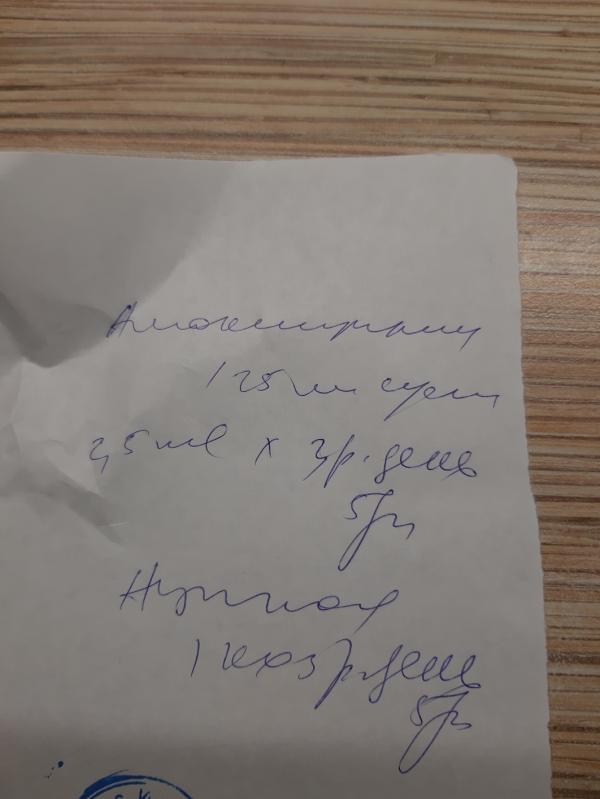 Амоксициллин
125 мг сусп
2,5 ml х 3 р. день
5 дн
1 к х 3 р. день
5 дн